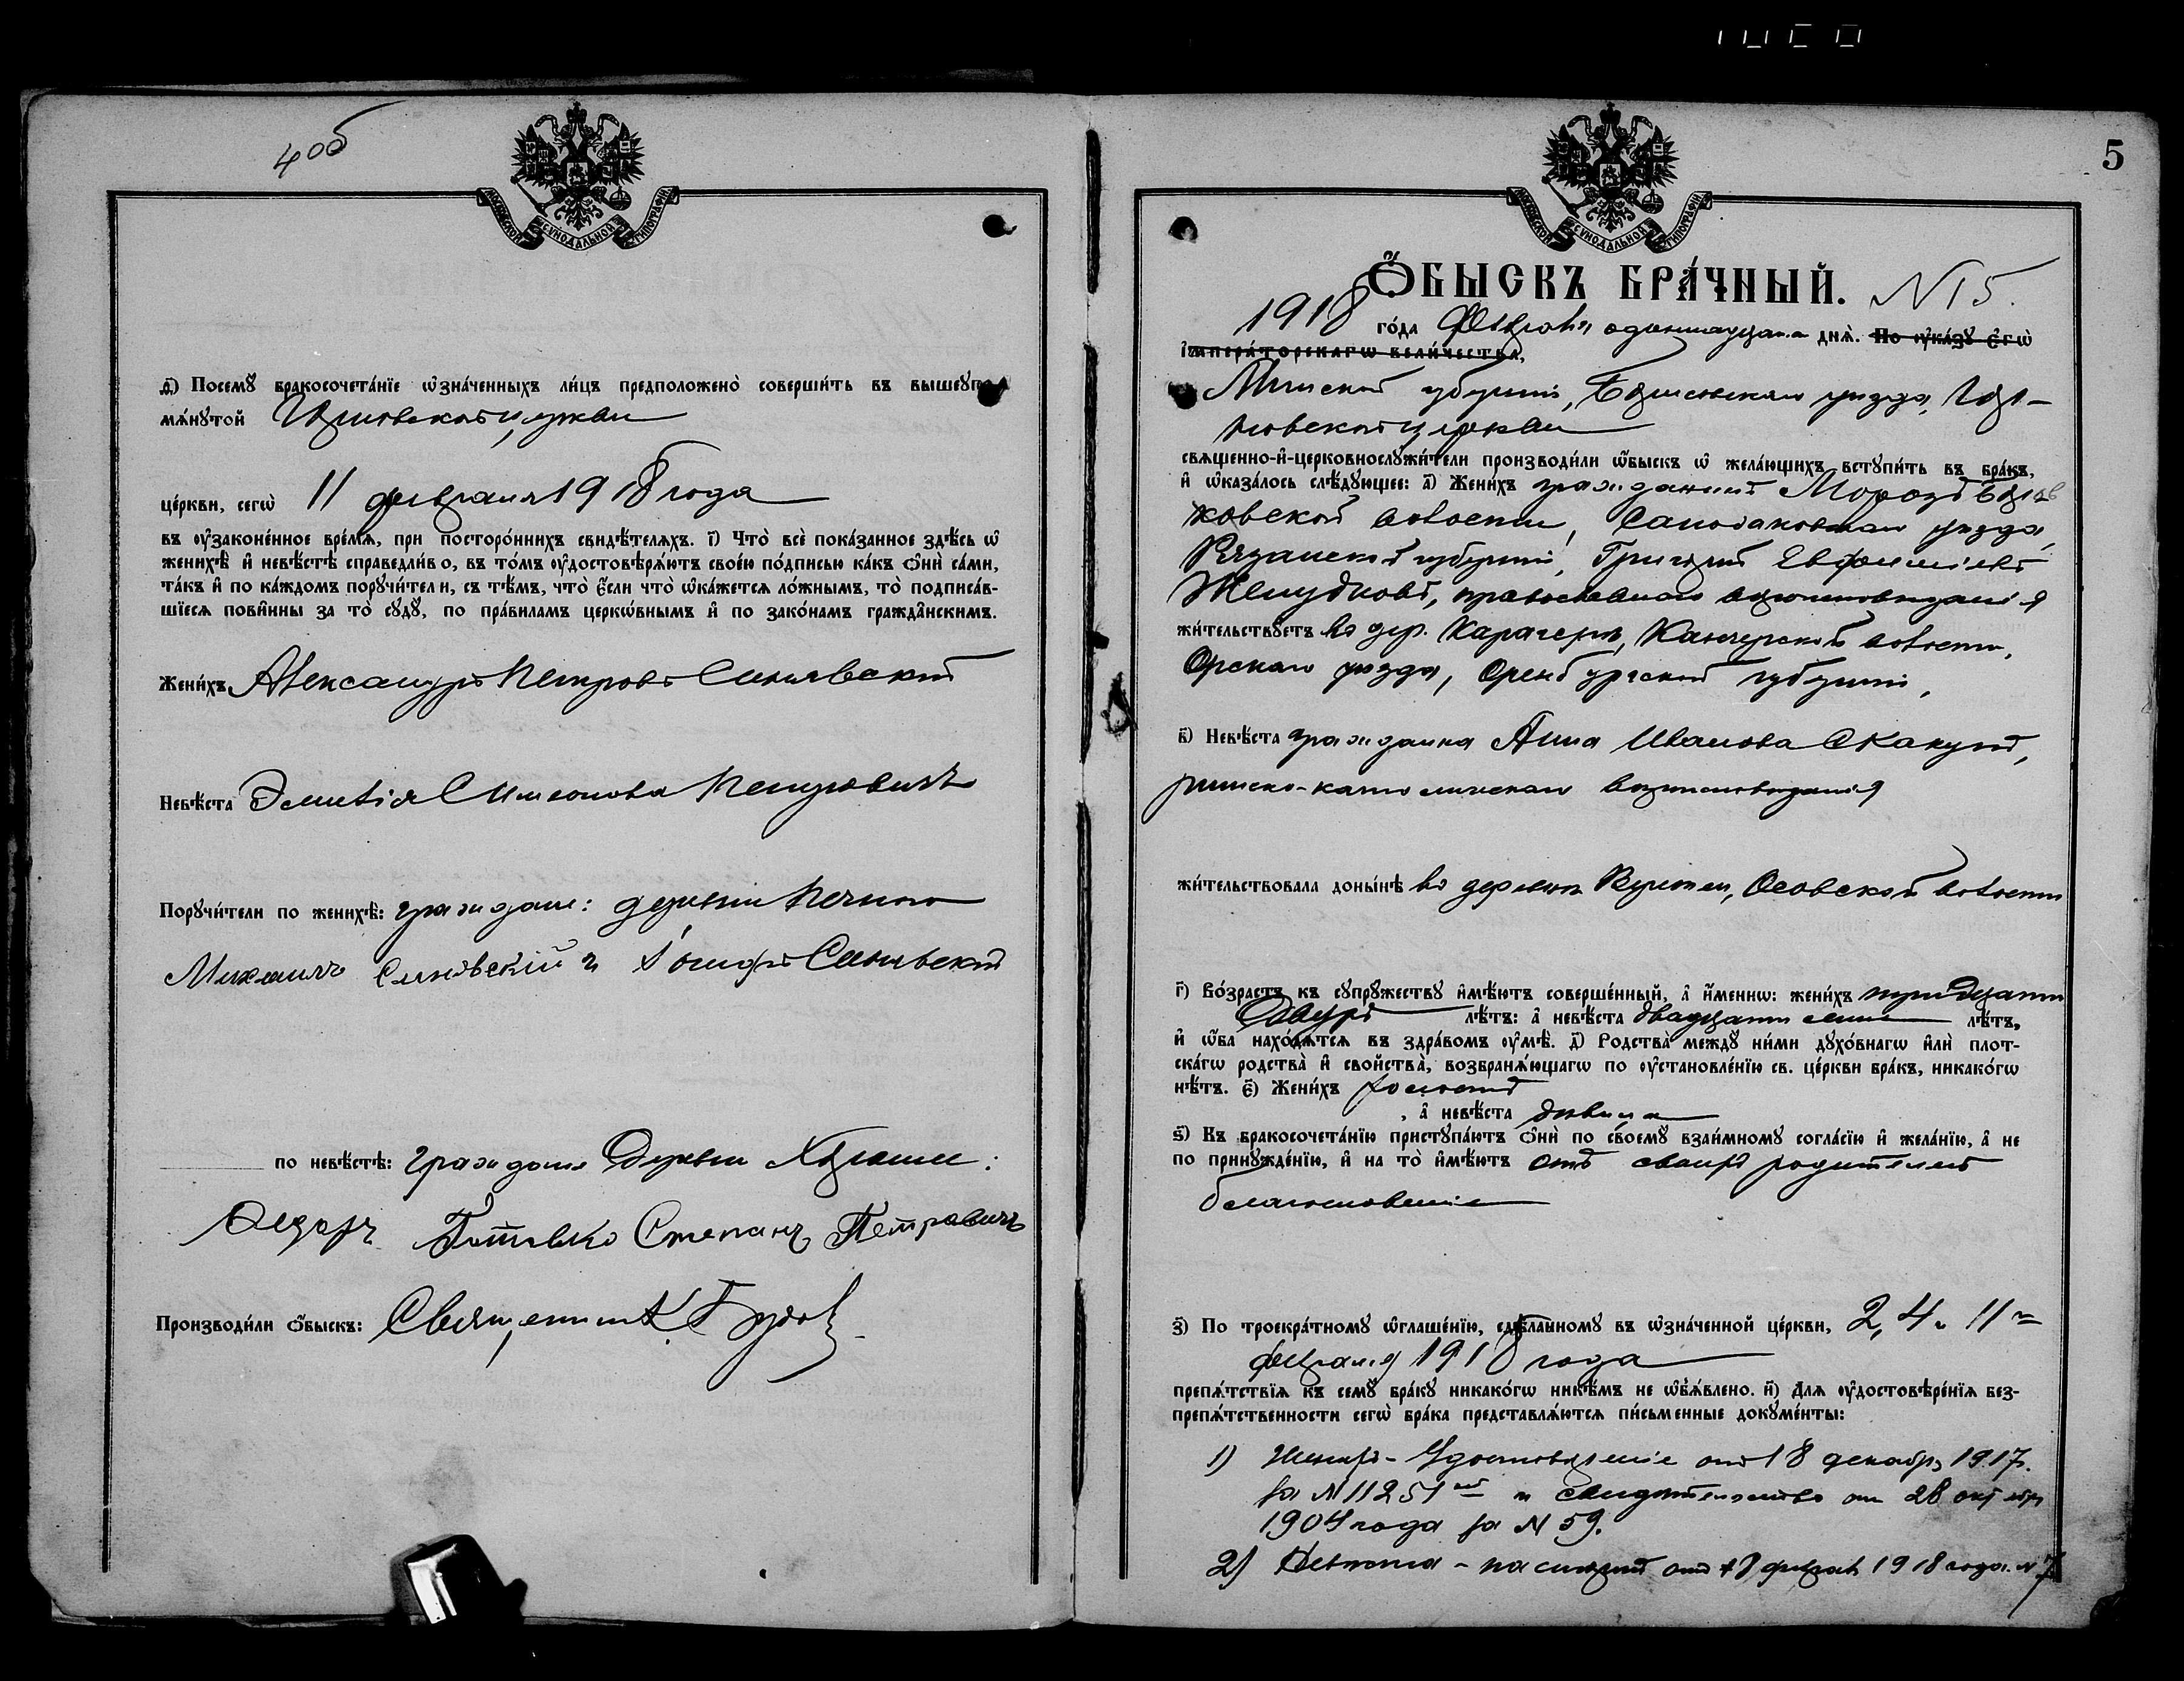 4об
МОСКОВСКОЙ СѴНОДАЛЬНОЙ ТИПОГРАФІИ
д҃) Посемꙋ̀ бракосочета́нїе ѡ҆зна́ченныхъ ли́цъ предположено̀ соверши́ть въ вышеꙋпо
мѧ́нꙋтой церкви
це́ркви, сегѡ̀ 11 февраля 1918 года
въ ᲂу҆зако́не́нное вре́мѧ, при посторо́ннихъ свидѣ́телѧхъ. і҃) Что̀ всѐ пока́занное здѣ́сь ѡ҆
женихѣ̀ и҆ невѣ́стѣ справедли́во, въ то́мъ ᲂу҆достовѣрѧ́ютъ свое́ю по́дписью ка́къ ѻ҆нѝ са́ми,
та́къ и҆ по ка́ждомъ порꙋчи́тели, съ тѣ́мъ, что̀ є҆́сли что̀ ѡ҆ка́жетсѧ ло́жнымъ, то̀ подписа́в-
шїесѧ пови́нны за то̀ сꙋдꙋ̀, по пра́виламъ церкѡ́внымъ и҆ по зако́намъ гражда̑нскимъ.
Жени́хъ Александръ Петровъ Синявский
Невѣ́ста Эмилія Симеонова Петровичъ
Порꙋчи́тели по женихѣ̀: граждане: деревни
Михаилъ Синявскій и Іосифъ Синявский
по невѣ́стѣ: граждане деревни
Федоръ Степанъ Петровичъ
Производи́ли ѻ҆́быскъ: Священник
5
МОСКОВСКОЙ СѴНОДАЛЬНОЙ ТИПОГРАФІИ
Ѻ҆́БЫСКЪ БРА́ЧНЫЙ. N 15.
1918 го́да Февраля одиннадцатаго днѧ̀. По ᲂу҆ка́зꙋ є҆гѡ̀
І҆мпера́торскагѡ вели́чества,
Минской губерніи, Борисовскаго уѣзда,
церкви
свѧще́нно-и҆-церковнослꙋжи́тели производи́ли ѻ҆́быскъ ѡ҆ жела́ющихъ встꙋпи́ть въ бра́къ,
и҆ ѡ҆каза́лось слѣ́дꙋющее: а҃) Жени́хъ гражданинъ
волости, уѣзда,
Рязанской губерніи, Григорій Евфиміевъ
Желудковъ, православнаго вѣроисповѣданія
жи́тельствꙋетъ въ дер. волости,
Орскаго уѣзда, Оренбургской губерніи,
в҃) Невѣ́ста гражданка Анна Иванова Скакунъ,
римско-католическаго вѣроисповѣданія
жи́тельствовала доны́нѣ въ деревнѣ Осовской волости
г҃) Во́зрастъ къ сꙋпрꙋ́жествꙋ и҆мѣ́ютъ соверше́нный, а҆ и҆́меннѡ: жени́хъ тридцати
лѣ́тъ: а҆ невѣ́ста двадцати семи лѣ́тъ,
и҆ ѻ҆́ба нахо́дѧтсѧ въ здра́вомъ ᲂу҆мѣ̀. д҃) Родства̀ междꙋ̀ ни́ми дꙋхо́внагѡ и҆лѝ плот-
ска́гѡ родства̀ и҆ свойства̀, возбранѧ́ющагѡ по ᲂу҆становле́нїю св. це́ркви бра́къ, никако́гѡ
нѣ́тъ. є҃) Жени́хъ холостъ
, а҆ невѣ́ста дѣвица
ѕ҃) Къ бракосочета́нїю пристꙋпа́ютъ ѻ҆нѝ по своемꙋ̀ взаи́мномꙋ согла́сїю и҆ жела́нїю, а҆ не
по принꙋжде́нїю, и҆ на то̀ и҆мѣ́ютъ отъ своихъ родителей
благословеніе
з҃) По троекра́тномꙋ ѡ҆глаше́нїю, сдѣ́ланномꙋ въ ѡ҆зна́ченной це́ркви, 2, 4 и 11го
февраля 1918 года
препѧ́тствїѧ къ семꙋ̀ бра́кꙋ никако́гѡ никѣ́мъ не ѡ҆б̾ѧ́влено. и҃) Длѧ ᲂу҆достовѣре́нїѧ без-
препѧ́тственности сегѡ̀ бра́ка представлѧ́ютсѧ пи́сьменные докꙋме́нты:
1) Жениха - Удостовѣреніе отъ 18 декабря 1917г.
за N 11251 и свидѣтельство от 28 октября
1904 года за N 59.
2) Невѣста - паспортъ отъ февраля 1918 года N 7